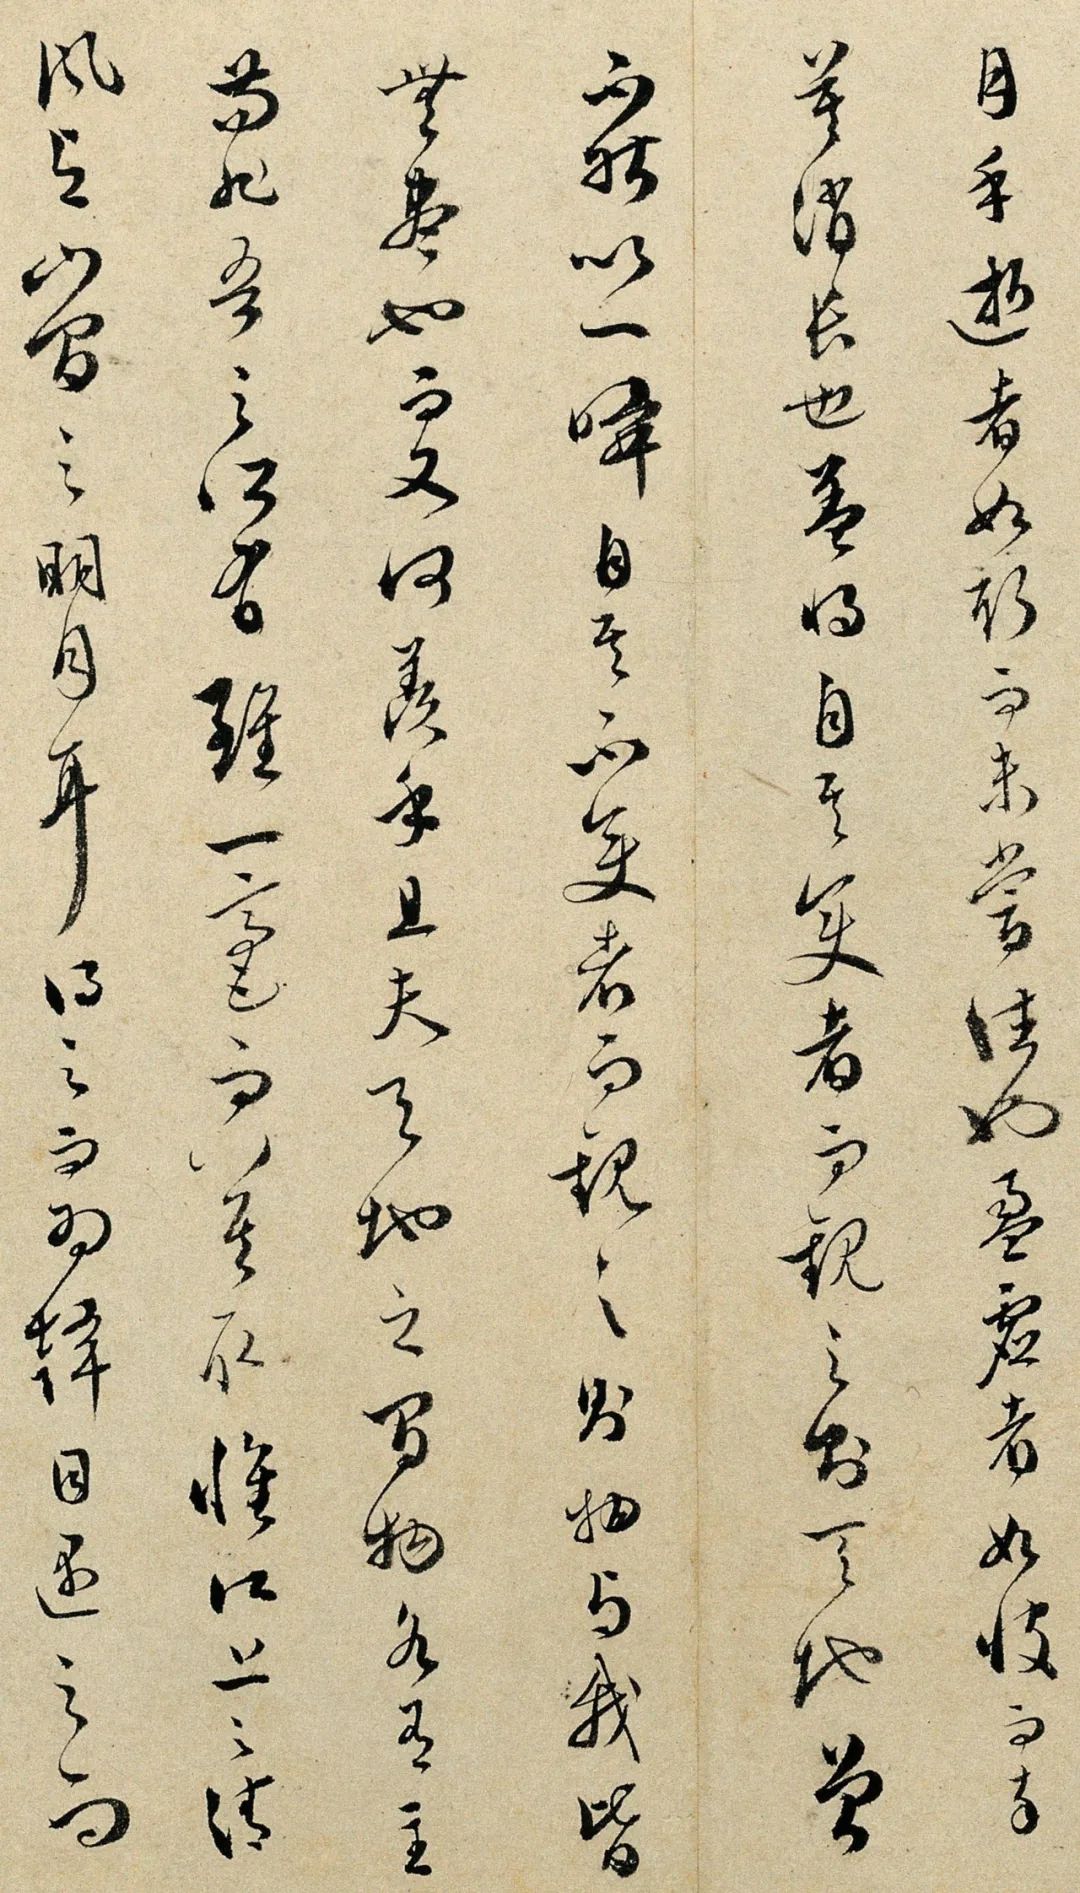 月乎逝者如斯而未嘗往也盈虛者如彼而卒
莫消長也蓋將自其變者而觀之則天地曾
不能以一瞬自其不變者而觀之則物與我皆
無盡也而又何羨乎且夫天地之間物各有主
苟非吾之所有雖一毫而莫取惟江上之清
風與山間之明月耳得之而為聲目遇之而